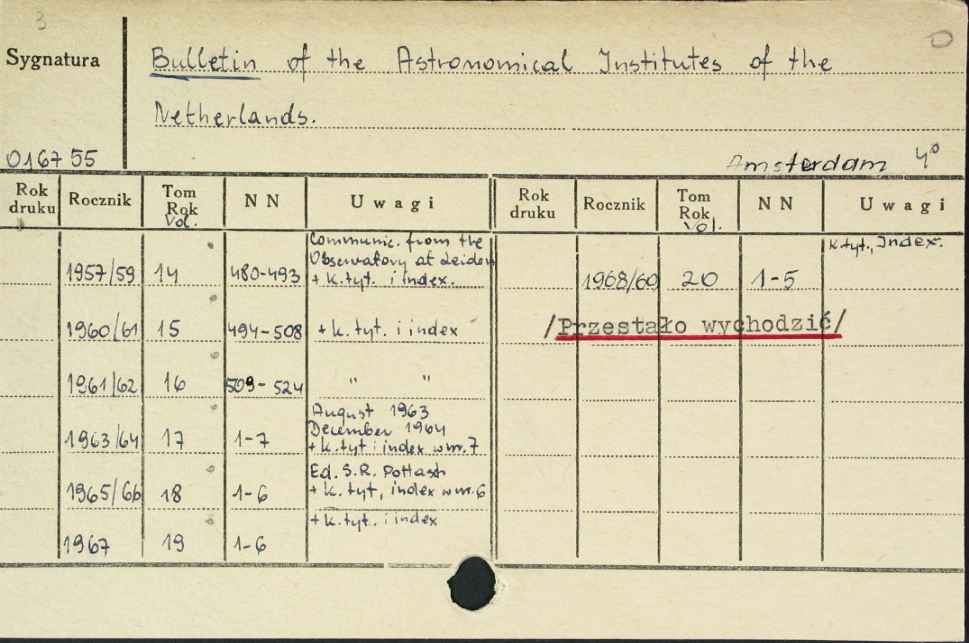 3
Sygnatura
Bulletin of the Astronomical Institutes of the
Netherlands.
016755
Amsterdam 4°
Rok druku Rocznik Tom Rok Vol. N N Uwagi Rok druku Rocznik Tom Rok Vol. N N Uwagi
1957/59 14 480-493 Communic. from the
Observatory at Leiden
+ k.tyt. i index.
1960/61 15 494-508 + k.tyt. i index
1961/62 16 509-524 " "
1963/64 17 1-7 August 1963
December 1964
+ k.tyt i index w nr. 7
1965/66 18 1-6 Ed. S.R. Pottasch
+ k.tyt, index w nr. 6
1967 19 1-6 + k.tyt. i index
1968/69 20 1-5 k.tyt., Index.
/Przestało wychodzić/